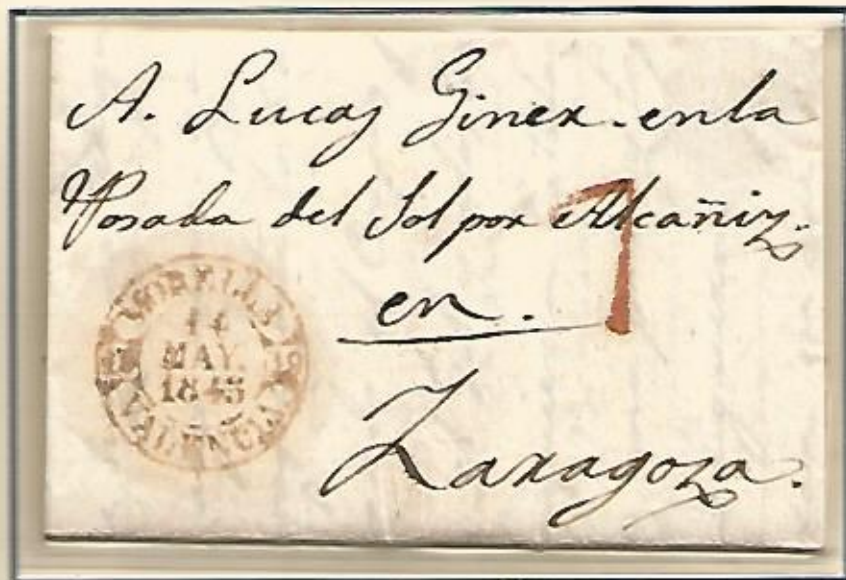 A. Lucas Ginex. en la
Posada del Sol por Alcañiz.
7
en.
Zaragoza.
MORELLA
14
MAY.
1845
VALENCIA